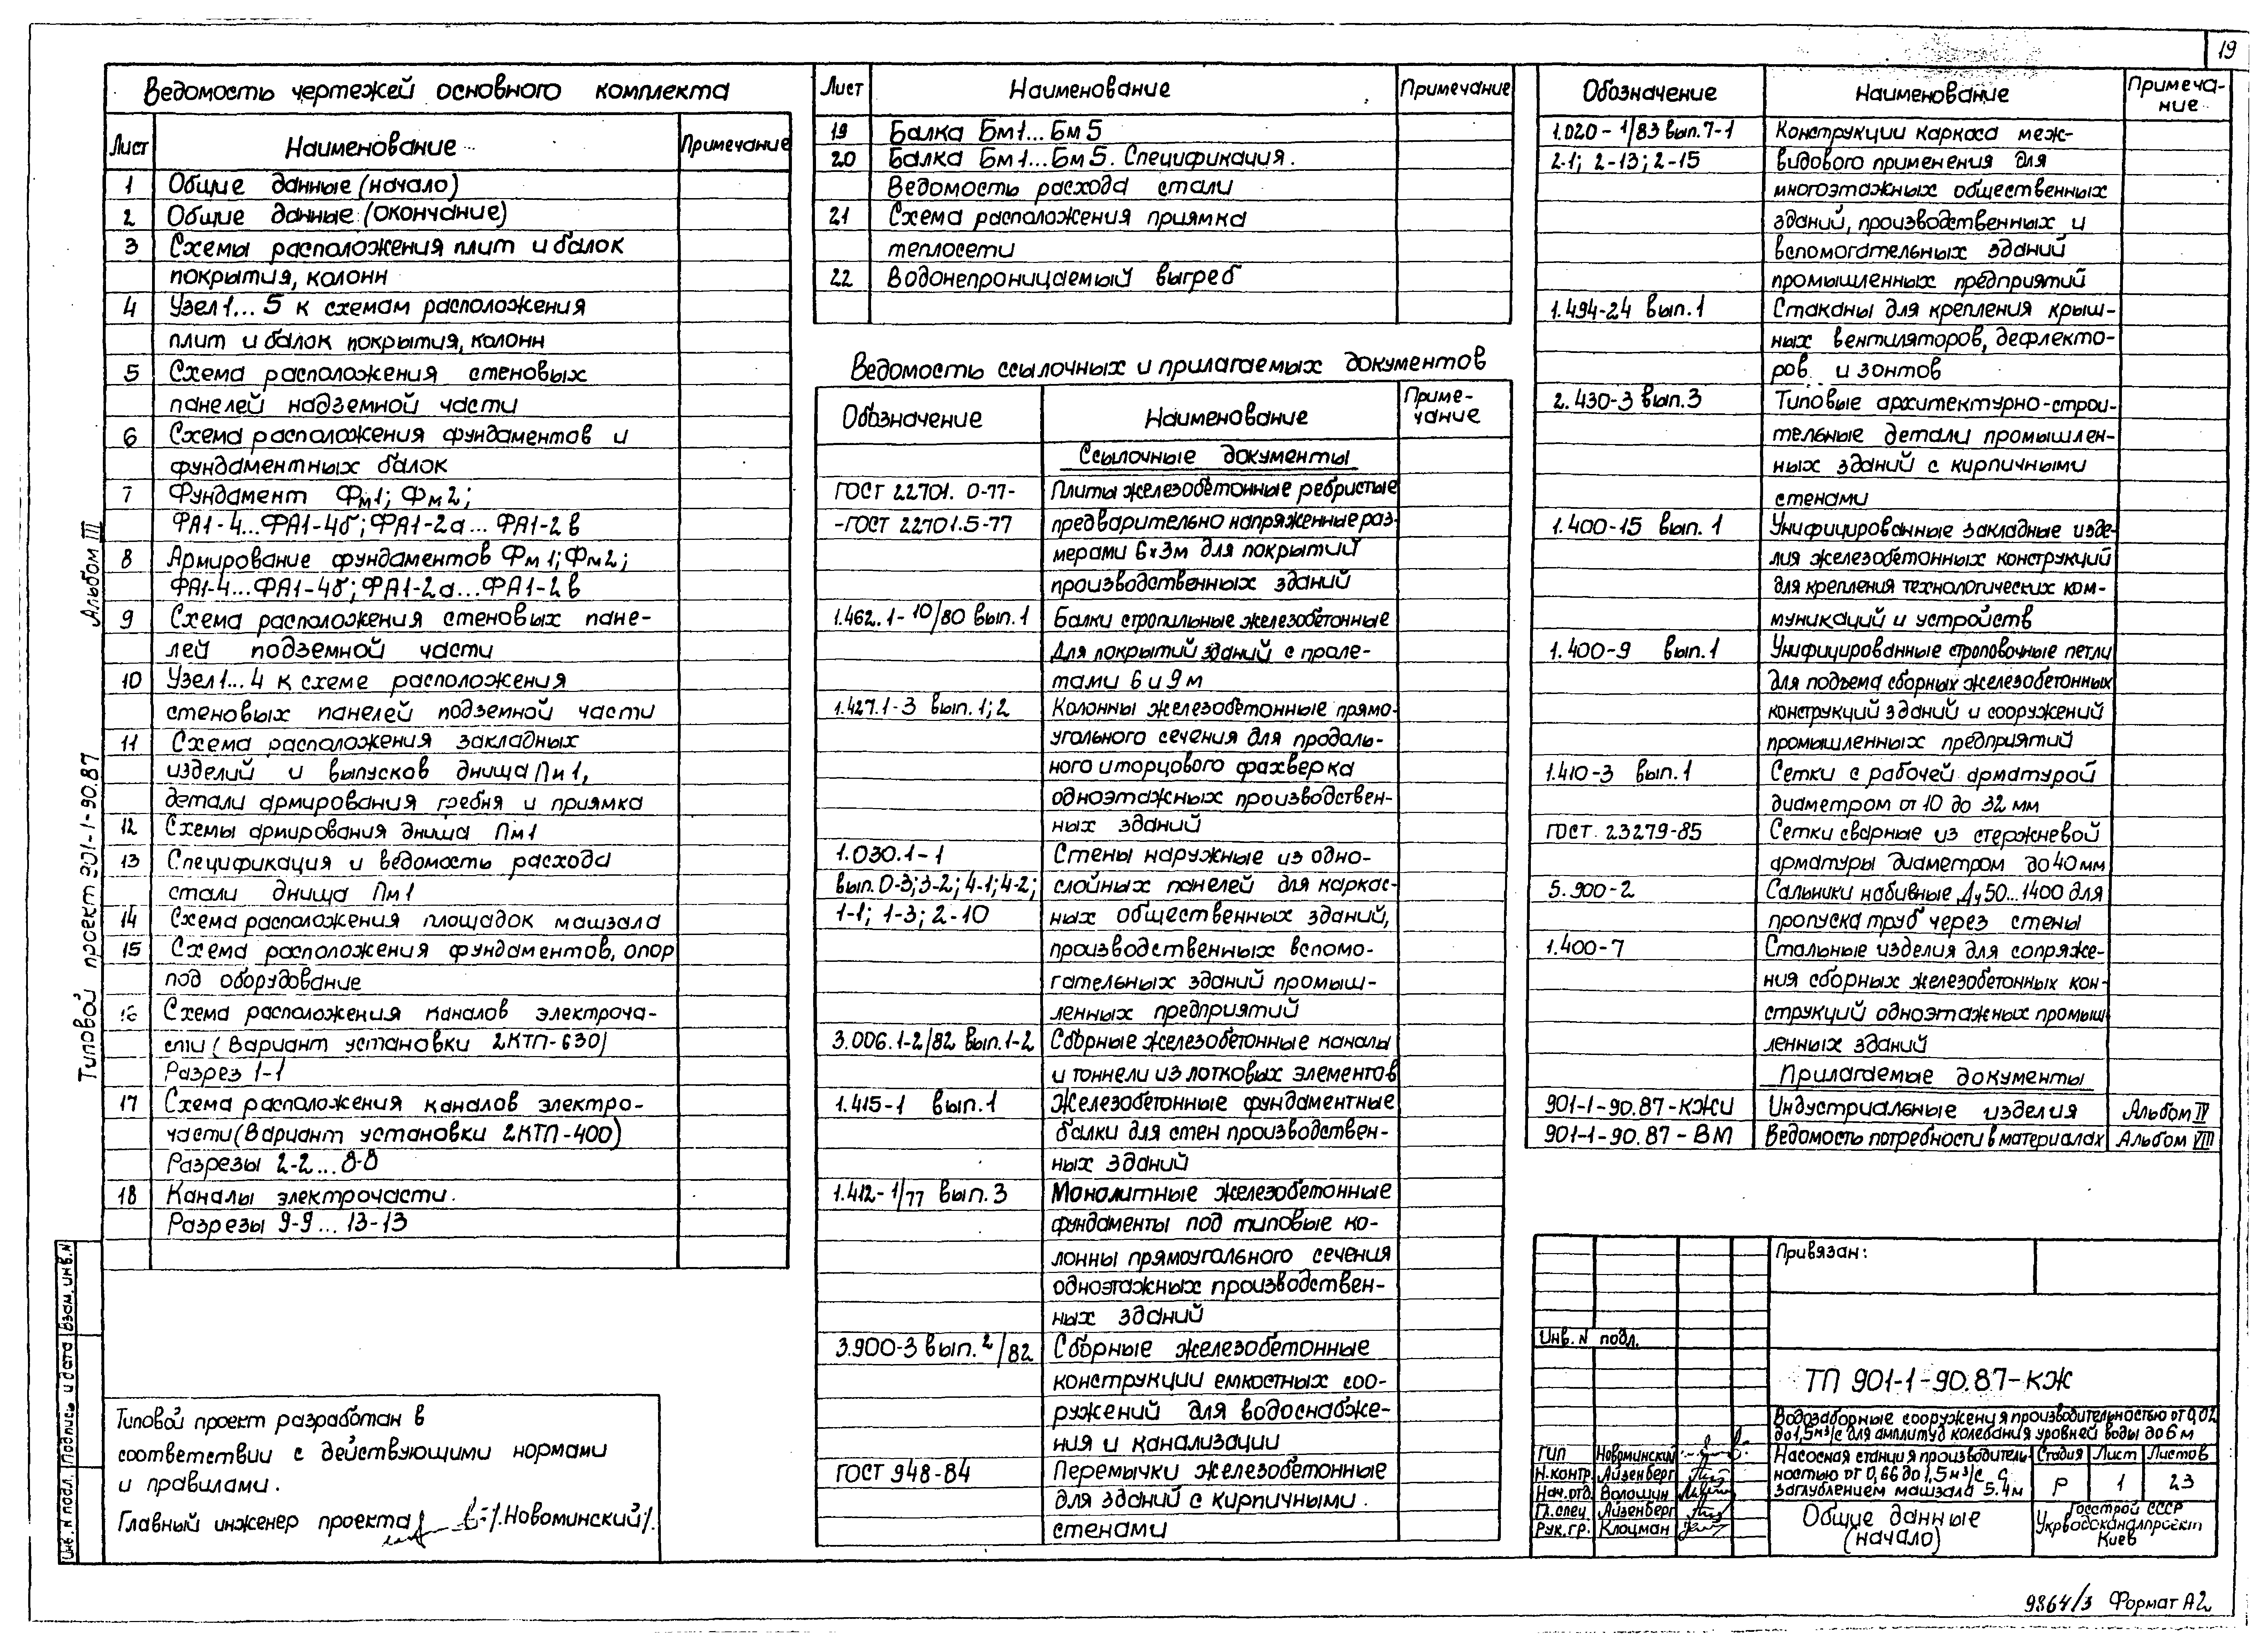 19
Ведомость чертежей основного комплекта
Лист Наименование Примечание
1 Общие данные (начало)
2 Общие данные (окончание)
3 Схемы расположения плит и балок
покрытия, колонн
4 Узел 1...5 к схемам расположения
плит и балок покрытия, колонн
5 Схема расположения стеновых
панелей надземной части
6 Схема расположения фундаментов и
фундаментных балок
7 Фундамент Фм1; Фм2;
ФА1-4...ФА1-4б; ФА1-2а... ФА1-2в
8 Армирование фундаментов Фм1; Фм2;
ФА1-4...ФА1-4б; ФА1-2а...ФА1-2в
9 Схема расположения стеновых пане-
лей подземной части
10 Узел 1...4 к схеме расположения
стеновых панелей подземной части
11 Схема расположения закладных
изделий и выпусков днища Пм1,
детали армирования гребня и приямка
12 Схемы армирования днища Пм1
13 Спецификация и ведомость расхода
стали днища Пм1
14 Схема расположения площадок машзала
15 Схема расположения фундаментов, опор
под оборудование
16 Схема расположения каналов электроча-
сти (Вариант установки 2КТП-630)
Разрез 1-1
17 Схема расположения каналов электро-
части (Вариант установки 2КТП-400)
Разрезы 2-2...8-8
18 Каналы электрочасти.
Разрезы 9-9...13-13
Типовой проект разработан в
соответствии с действующими нормами
и правилами.
Главный инженер проекта /Новоминский/.
Лист Наименование Примечание
19 Балка Бм1...Бм5
20 Балка Бм1...Бм5. Спецификация.
Ведомость расхода стали
21 Схема расположения приямка
теплосети
22 Водонепроницаемый выгреб
Ведомость ссылочных и прилагаемых документов
Обозначение Наименование Приме-
чание
Ссылочные документы
ГОСТ 22701.0-77- Плиты железобетонные ребристые
-ГОСТ 22701.5-77 предварительно напряженные раз-
мерами 6x3м для покрытий
производственных зданий
1.462.1-10/80 вып.1 Балки стропильные железобетонные
Для покрытий зданий с проле-
тами 6 и 9 м
1.427.1-3 вып.1;2 Колонны железобетонные прямо-
угольного сечения для продоль-
ного и торцового фахверка
одноэтажных производствен-
ных зданий
1.030.1-1 Стены наружные из одно-
вып.0-3; 3-2; 4-1; 4-2; слойных панелей для каркас-
1-1; 1-3; 2-10 ных общественных зданий,
производственных вспомо-
гательных зданий промыш-
ленных предприятий
3.006.1-2/82 вып.1-2 Сборные железобетонные каналы
и тоннели из лотковых элементов
1.415-1 вып.1 Железобетонные фундаментные
балки для стен производствен-
ных зданий
1.412-1/77 вып.3 Монолитные железобетонные
фундаменты под типовые ко-
лонны прямоугольного сечения
одноэтажных производствен-
ных зданий
3.900-3 вып.2/82 Сборные железобетонные
конструкции емкостных соо-
ружений для водоснабже-
ния и канализации
ГОСТ 948-84 Перемычки железобетонные
для зданий с кирпичными
стенами
Обозначение Наименование Примеча-
ние
1.020-1/83 вып.7-1 Конструкции каркаса меж-
2-1; 2-13; 2-15 видового применения для
многоэтажных общественных
зданий, производственных и
вспомогательных зданий
промышленных предприятий
1.494-24 вып.1 Стаканы для крепления крыш-
ных вентиляторов, дефлекто-
ров и зонтов
2.430-3 вып.3 Типовые архитектурно-строи-
тельные детали промышлен-
ных зданий с кирпичными
стенами
1.400-15 вып.1 Унифицированные закладные изде-
лия железобетонных конструкций
для крепления технологических ком-
муникаций и устройств
1.400-9 вып.1 Унифицированные строповочные петли
для подъема сборных железобетонных
конструкций зданий и сооружений
промышленных предприятий
1.410-3 вып.1 Сетки с рабочей арматурой
диаметром от 10 до 32 мм
ГОСТ 23279-85 Сетки сварные из стержневой
арматуры диаметром до 40 мм
5.900-2 Сальники набивные Ду50...1400 для
пропуска труб через стены
1.400-7 Стальные изделия для сопряже-
ния сборных железобетонных кон-
струкций одноэтажных промыш-
ленных зданий
Прилагаемые документы
901-1-90.87-КЖИ Индустриальные изделия Альбом IV
901-1-90.87-ВМ Ведомость потребности в материалах Альбом VIII
Привязан:
Инв. N подл.
ТП 901-1-90.87-КЖ
Водозаборные сооружения производительностью от 0,02
до 1,5м³/с для амплитуд колебания уровней воды до 6м
ГИП Новоминский
Н.контр. Айзенберг
Нач.отд. Волошин
Гл.спец. Айзенберг
Рук.гр. Клоцман
Насосная станция производитель-
ностью от 0,66 до 1,5 м³/с с
заглублением машзала 5.4м
Стадия Лист Листов
Р 1 23
Общие данные
(начало)
Госстрой СССР
Укрводоканалпроект
Киев
9864/3 Формат А2
Типовой проект 901-1-90.87 Альбом III
Инв. N подл. Подпись и дата Взам. инв. N